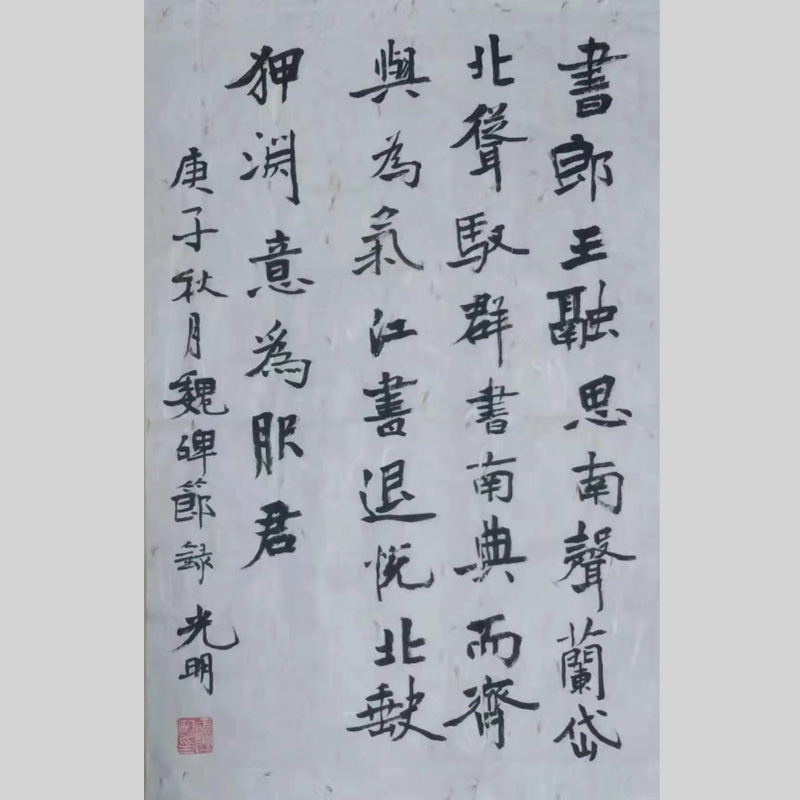 書郎王融思南聲蘭岱
北聳馭群書南典而齊
與為氣江書退悦北
狎渊意為服君
庚子秋月魏碑節録光明